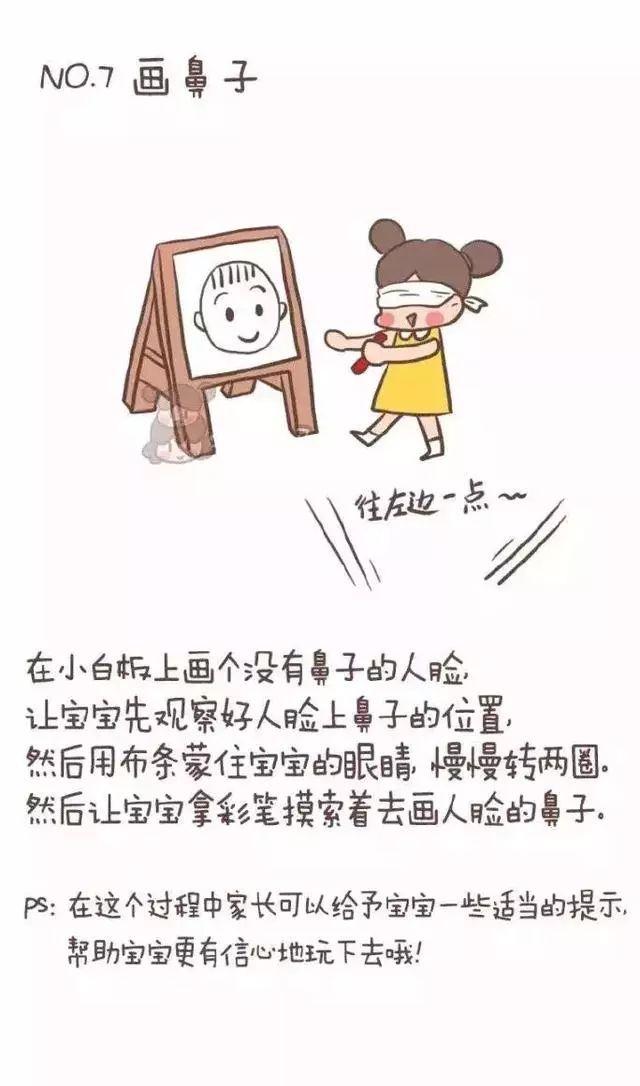 NO.7 画鼻子
往左边一点～
在小白板上画个没有鼻子的人脸,
让宝宝先观察好人脸上鼻子的位置,
然后用布条蒙住宝宝的眼睛,慢慢转两圈。
然后让宝宝拿彩笔摸索着去画人脸的鼻子.
PS: 在这个过程中家长可以给予宝宝一些适当的提示,
帮助宝宝更有信心地玩下去哦!